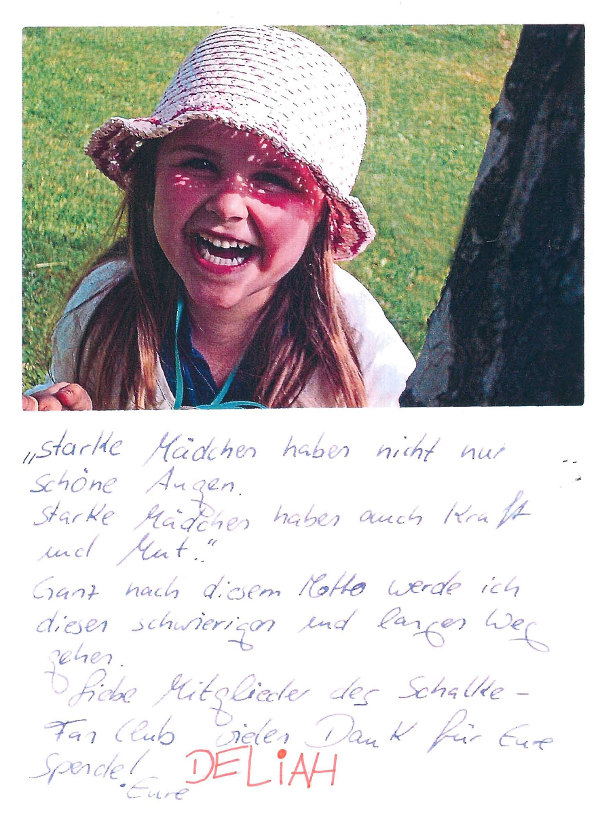 „starke Mädchen haben nicht nur
schöne Augen.
starke Mädchen haben auch Kraft
und Mut."
Ganz nach diesem Motto werde ich
diesen schwierigen und langen Weg
gehen.
Liebe Mitglieder des Schalke-
Fan Club vielen Dank für Eure
Spende!
Eure DELiAH